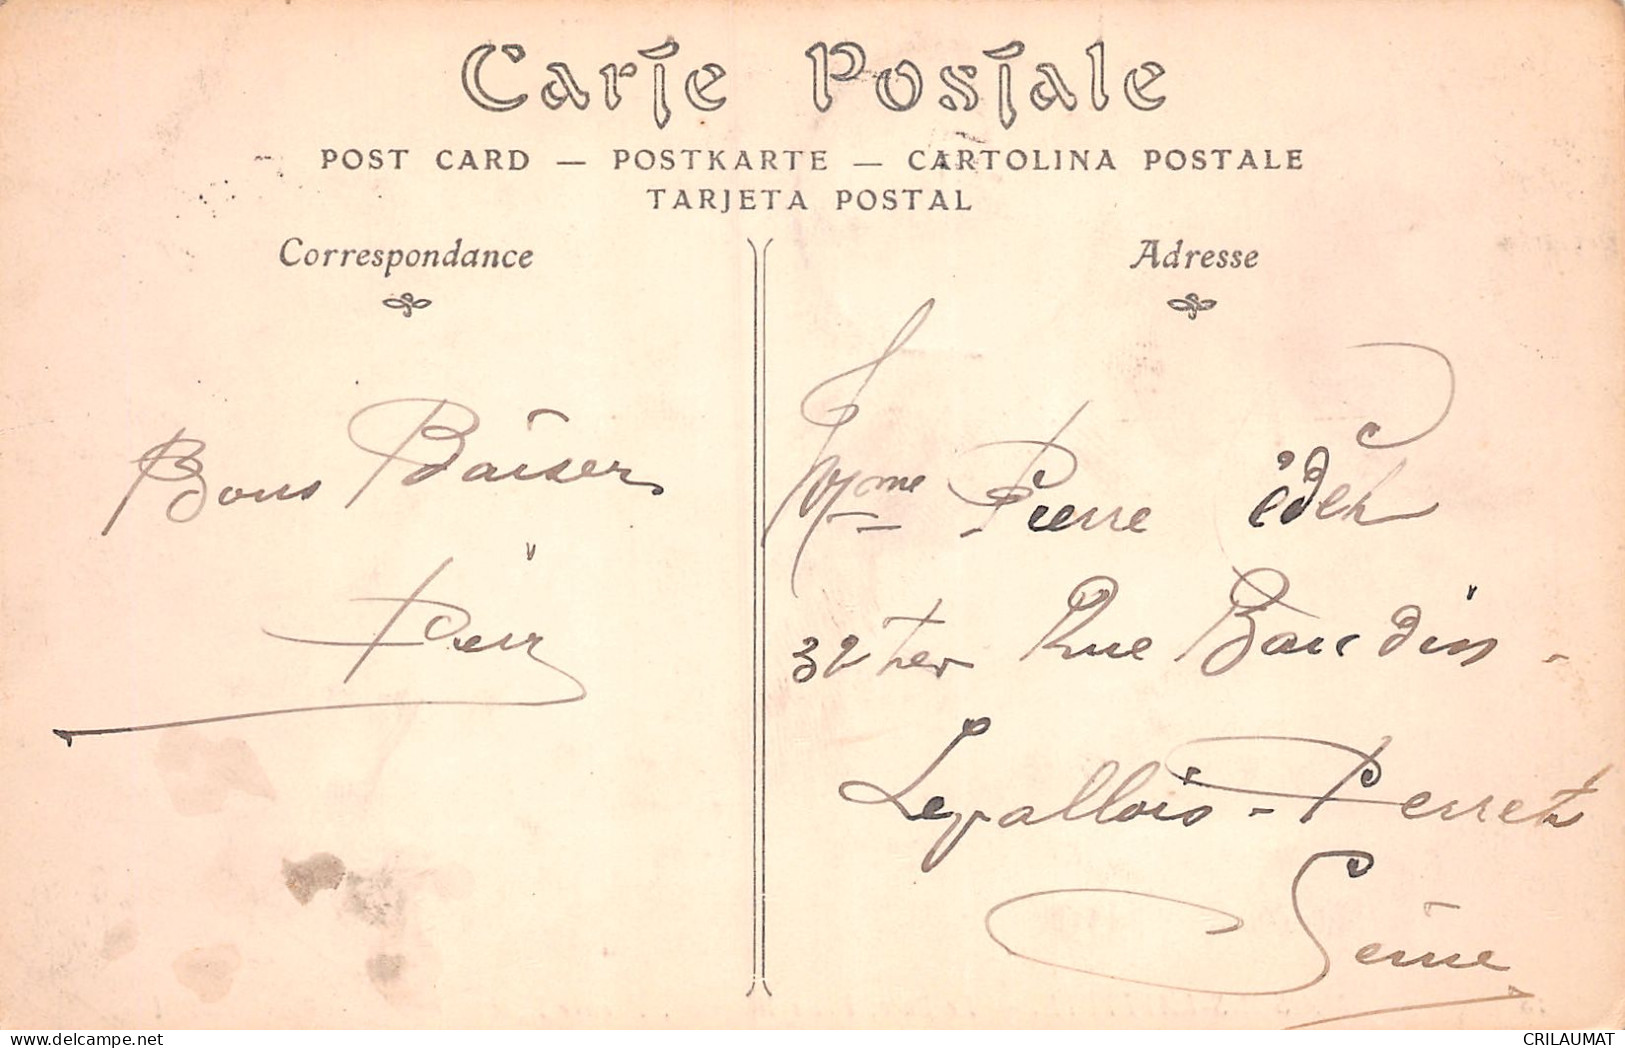 Carte Postale
POST CARD — POSTKARTE — CARTOLINA POSTALE
TARJETA POSTAL
Correspondance
Bons Baiser
Adresse
Mme Pierre
32 ter Rue Baudin -
Levallois - Perret
Seine
delcampe.net
CRILAUMAT